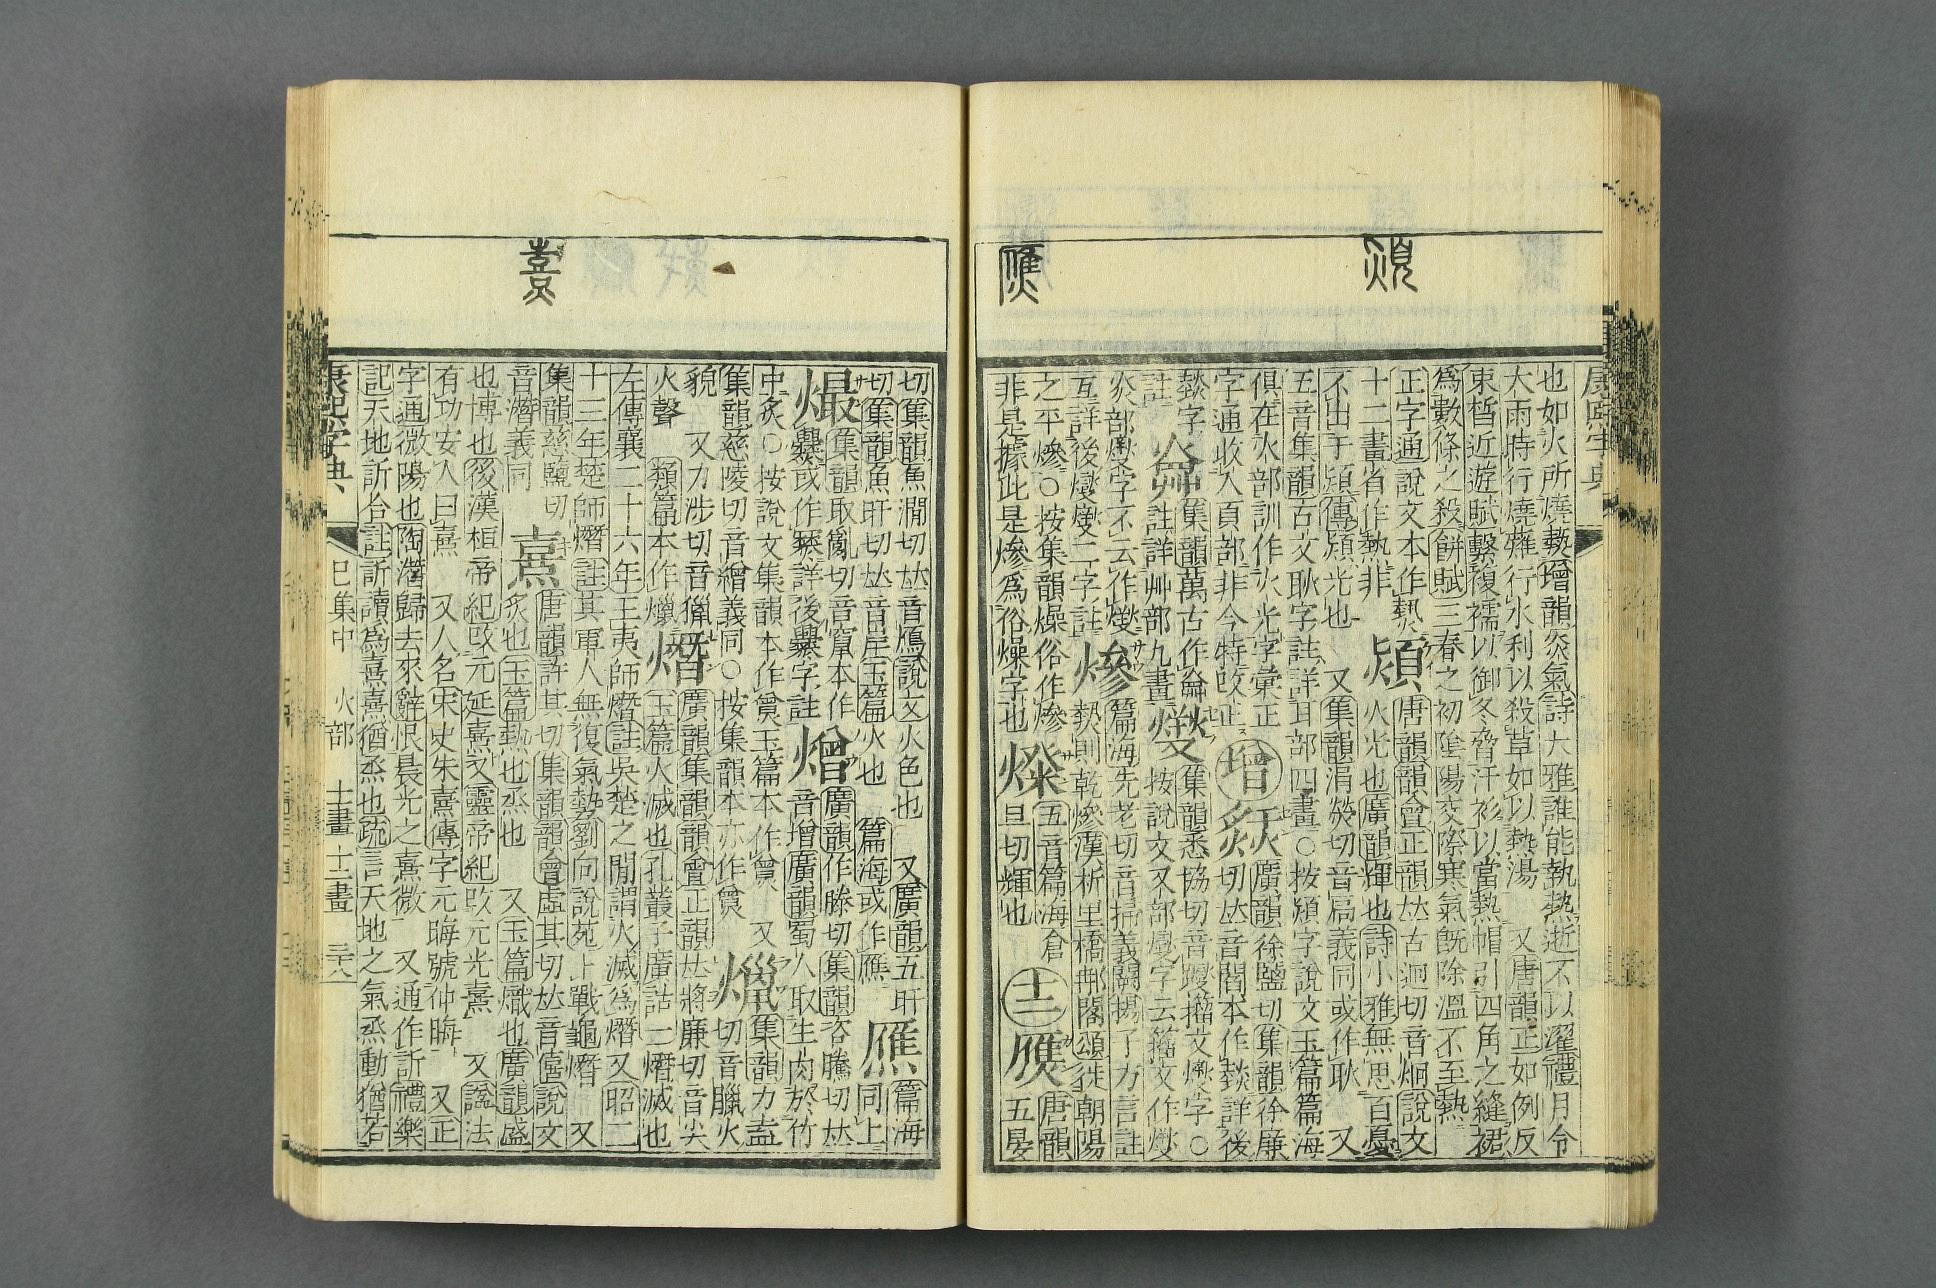 熲
也如火所燒熱增韻炎氣詩大雅誰能執熱逝不以濯禮月令
大雨時行燒薙行水利以殺草如以熱湯 又唐韻正如例反
東皙近遊賦繫複襦以御冬脅汗衫以當熱帽引四角之縫裙
爲數條之殺餠賦三春之初陰陽交際寒氣旣除溫不至熱
正字通說文本作熱 熲 唐韻韻會正韻𠀤古迥切音炯說文
十二畫省作熱非 火光也廣韻輝也詩小雅無思百憂
不出于熲傳熲光也 又集韻涓熒切音扃義同或作耿 又
五音集韻古文耿字註詳耳部四畫○按熲字說文玉篇篇海
俱在火部訓作火光字彙正
字通收入頁部非今特改正 增 廣韻徐鹽切集韻徐廉
切𠀤音閻本作燅詳後
燅字
註 集韻籥古作龠
註詳艸部九畫 集韻悉協切音躞籒文燮字○
按說文又部燮字云籒文作燮
炎部燮字不云作燮
互詳後燮燮二字註 熮 篇海先老切音掃義闕揚了方言註
熱則乾熮漢析里橋郙閣頌徙朝陽
之平熮○按集韻燥俗作熮
非是據此是熮爲俗燥字也 五音篇海倉
旦切輝也 十二 唐韻
五晏
切集韻魚澗切𠀤音鴈說文火色也 又廣韻五旰
切集韻魚旰切𠀤音岸玉篇火也 篇海或作 篇海
同上
集韻取亂切音竄本作
爨或作 詳後爨字註 熷 廣韻作滕切集韻咨騰切𠀤
音增廣韻蜀人取生肉於竹
中炙○按說文集韻本作 玉篇本作 又
集韻慈陵切音繒義同○按集韻本亦作 集韻力盍
切音臘火
貌 又力涉切音獵
火聲 類篇本作爉 熸 廣韻集韻韻會正韻𠀤將廉切音尖
玉篇火滅也孔叢子廣詁一熸滅也
左傳襄二十六年王夷師熸註吳楚之閒謂火滅爲熸又昭二
十三年楚師熸註其軍人無復氣勢劉向說苑上戰龜熸 又
集韻慈鹽切
音潛義同 熹 唐韻許其切集韻韻會虛其切𠀤音僖說文
炙也玉篇熱也烝也 又玉篇熾也廣韻盛
也博也後漢桓帝紀改元延熹又靈帝紀改元光熹 又謚法
有功安人曰熹 又人名宋史朱熹傳字元晦號仲晦 又正
字通微陽也陶潛歸去來辭恨晨光之熹微 又通作訢禮樂
記天地訢合註訢讀爲熹熹猶烝也疏言天地之氣烝動猶若
熹
康熙字典 巳集中 火部 十一畫 十二畫